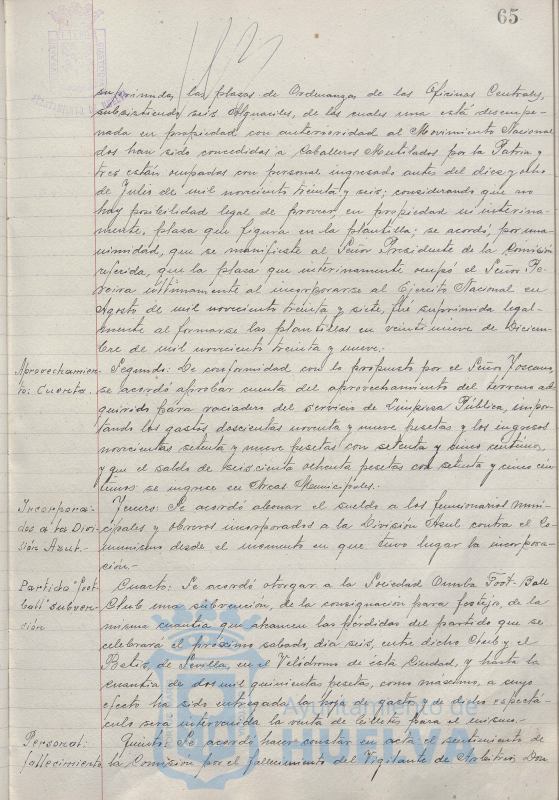 65
suprimidas las plazas de Ordenanzas de las Oficinas Centrales,
subsistiendo seis Alguaciles, de las cuales una está desempe-
ñada en propiedad con anterioridad al Movimiento Nacional
dos han sido concedidas a Caballeros Mutilados por la Patria y
tres están ocupadas con personal ingresado antes del diez y ocho
de Julio de mil novecientos treinta y seis; considerando que no
hay posibilidad legal de proveer en propiedad ni interina-
mente, plaza que figura en la plantilla; se acordó, por una-
nimidad, que se manifieste al Señor Presidente de la Comisión
referida, que la plaza que interinamente ocupó el Señor
últimamente al incorporarse al Ejército Nacional en
Agosto de mil novecientos treinta y siete, fué suprimida legal-
mente al formarse las plantillas en veintinueve de Diciem-
bre de mil novecientos treinta y nueve.
Aprovechamien-
to: Cuenta.
Segundo: De conformidad con lo propuesto por el Señor Toscano,
se acordó aprobar cuenta del aprovechamiento del terreno ad-
quirido para vaciadero del servicio de Limpieza Pública, impor-
tando los gastos doscientas noventa y nueve pesetas y los ingresos
novecientas setenta y nueve pesetas con setenta y cinco céntimos,
y que el saldo de seiscientas ochenta pesetas con setenta y cinco cén-
timos se ingrese en Arcas Municipales.
Incorpora-
dos a la Divi-
sión Azul.-
Tercero: Se acordó abonar el sueldo a los funcionarios muni-
cipales y obreros incorporados a la División Azul contra el Co-
munismo desde el momento en que tuvo lugar la incorpora-
ción.-
Partido "foot-
ball" subven-
ción
Cuarto: Se acordó otorgar a la Sociedad Onuba Foot-Ball
Club una subvención, de la consignación para festejos, de la
misma cuantía que alcancen las pérdidas del partido que se
celebrará el próximo sabado, día seis, entre dicho Club y el
Betis, de Sevilla, en el Velódromo de esta Ciudad, y hasta la
cuantía de dos mil quinientas pesetas, como máximo, a cuyo
efecto ha sido entregada la hoja de gastos y de dicho espectá-
culo será intervenida la venta de billetes para el mismo.-
Personal:
fallecimiento
Quinto: Se acordó hacer constar en acta el sentimiento de
la Comisión por el fallecimiento del Vigilante de Arbitrios Don
Ayuntamiento de
HUELVA